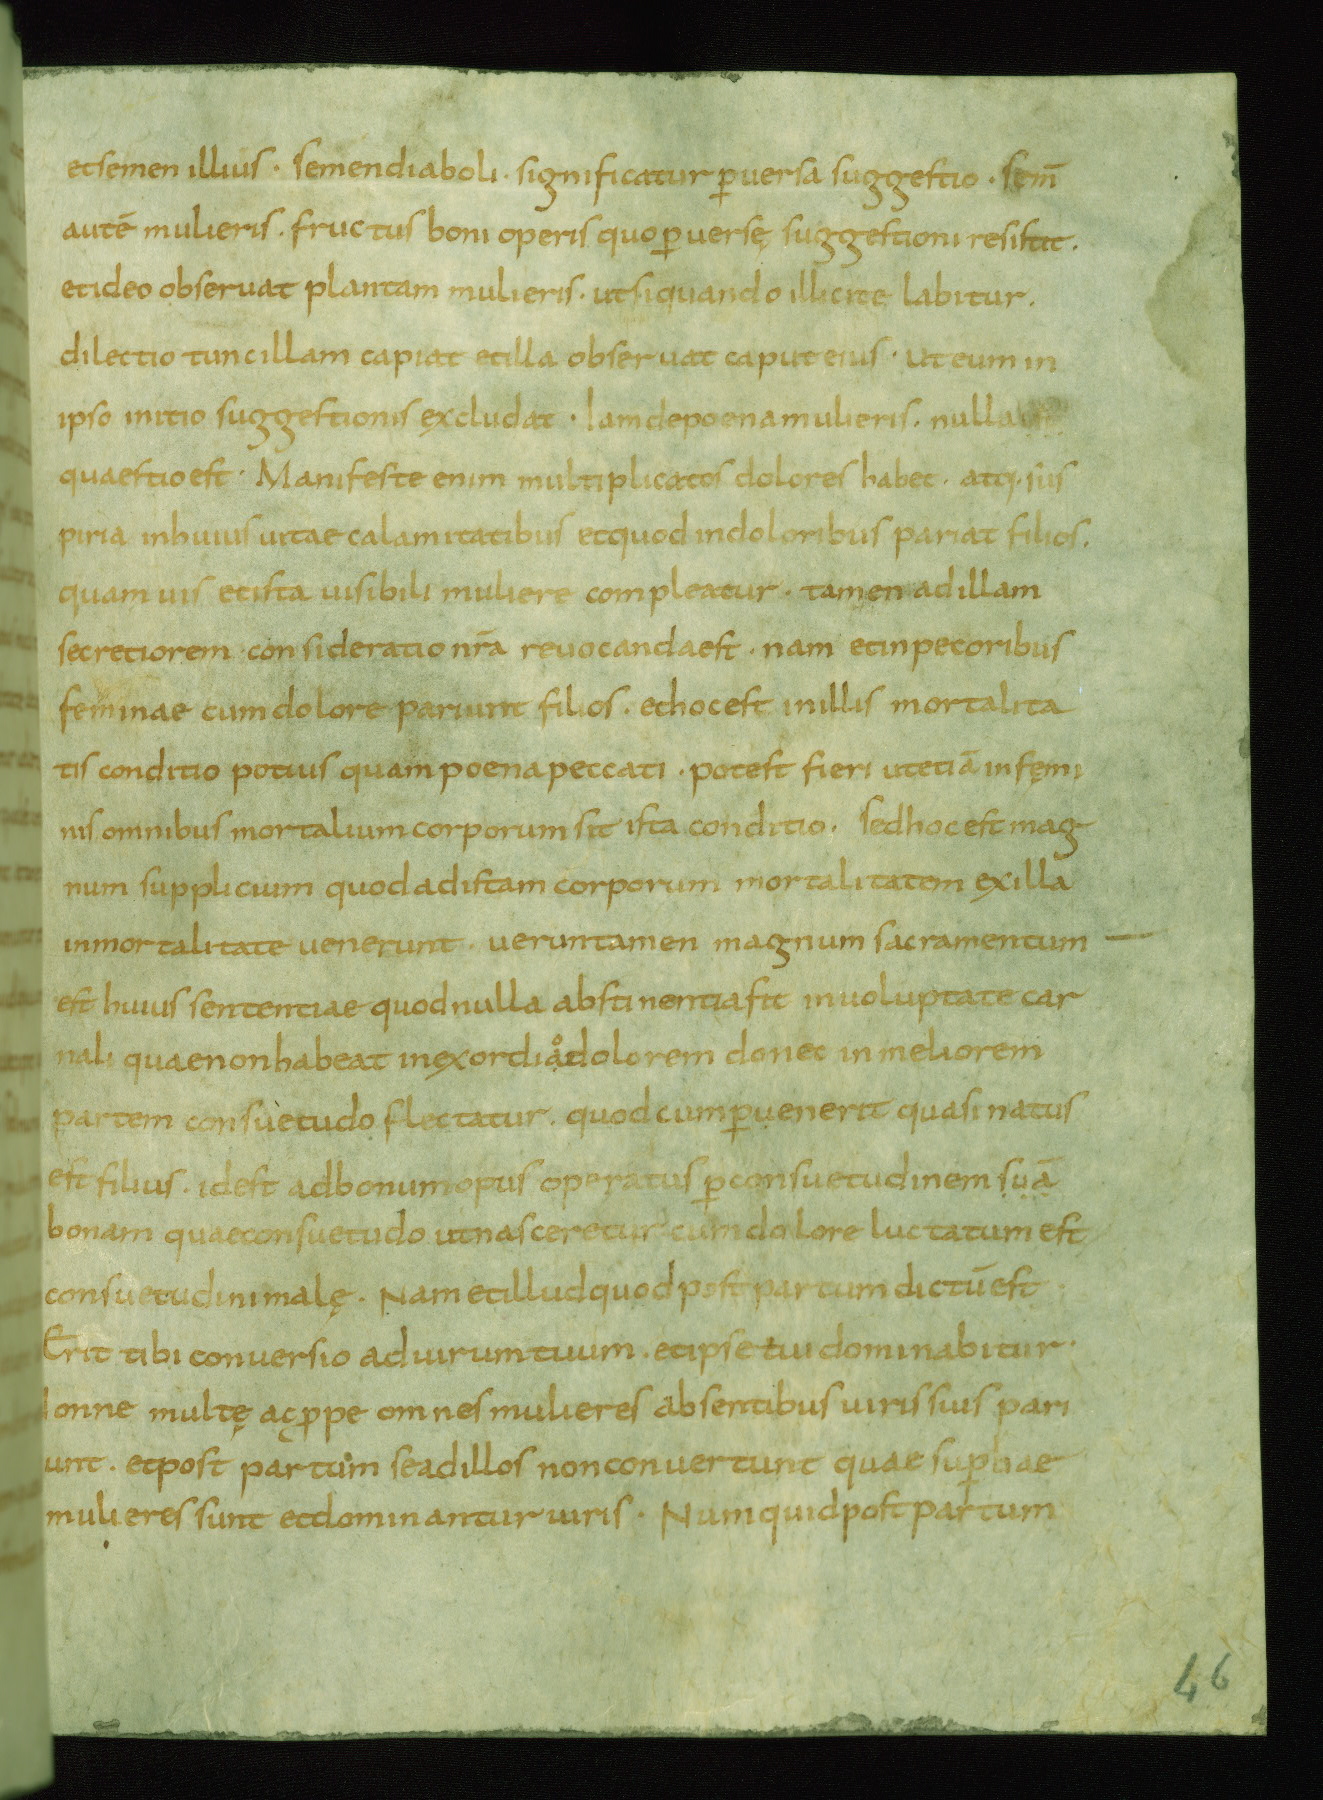 et semen illius · semen diaboli · significatur ꝑuersa suggestio · sem̄
autē mulieris · fructus boni operis quo ꝑuersę suggestioni resistit ·
et ideo obseruat plantam mulieris · ut si quando illicite labitur ·
dilectio tunc illam capiat et illa obseruat caput eius · ut eum in
ipso initio suggestionis excludat · Iam de poena mulieris · nulla
quaestio est · Manifeste enim multiplicatos dolores habet · atq· sus
piria in huius uitae calamitatibus et quod in doloribus pariat filios ·
quam uis et ista uisibili muliere compleatur · tamen ad illam
secretiorem consideratio nr̄a reuocanda est · nam et in pecoribus
feminae cum dolore pariunt filios · et hoc est in illis mortalita
tis conditio potius quam poena peccati · potest fieri ut etiā in fęmi
nis omnibus mortalium corporum sit ista conditio · sed hoc est mag
num supplicium quod ad istam corporum mortalitatem ex illa
inmortalitate uenerunt · ueruntamen magnum sacramentum
est huius sententiae quod nulla abstinentia fit in uoluptate car
nali quae non habeat in exordio dolorem donec in meliorem
partem consuetudo flectatur · quod cum ꝑuenerit quasi natus
est filius · id est ad bonum opus operatus ꝑ consuetudinem suā
bonam quae consuetudo ut nasceretur cum dolore luctatum est
consuetudini malę · Nam et illud quod post partum dictū est
Erit tibi conuersio ad uirum tuum · et ipse tui dominabitur ·
Nonne multę ac ꝓpe omnes mulieres absentibus uiris suis pari
unt · et post partum se ad illos non conuertunt quae suꝑbae
mulieres sunt et dominantur uiris · Numquid post partum
46